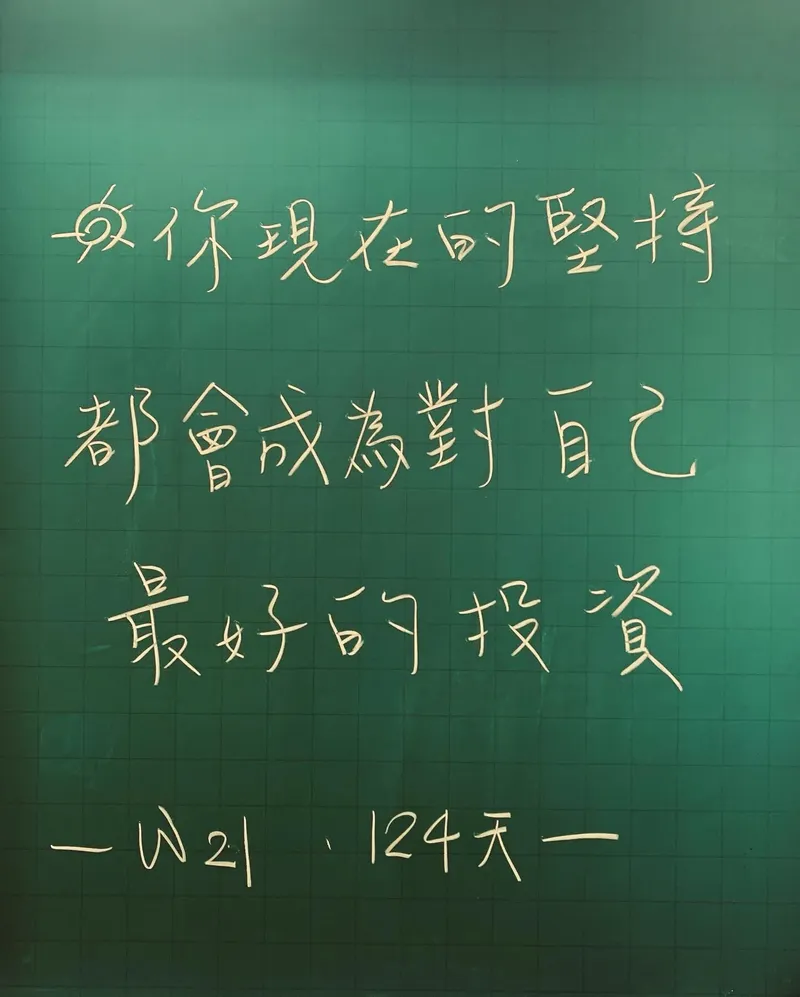 你現在的堅持
都會成為對自己
最好的投資
— W21、124天 —